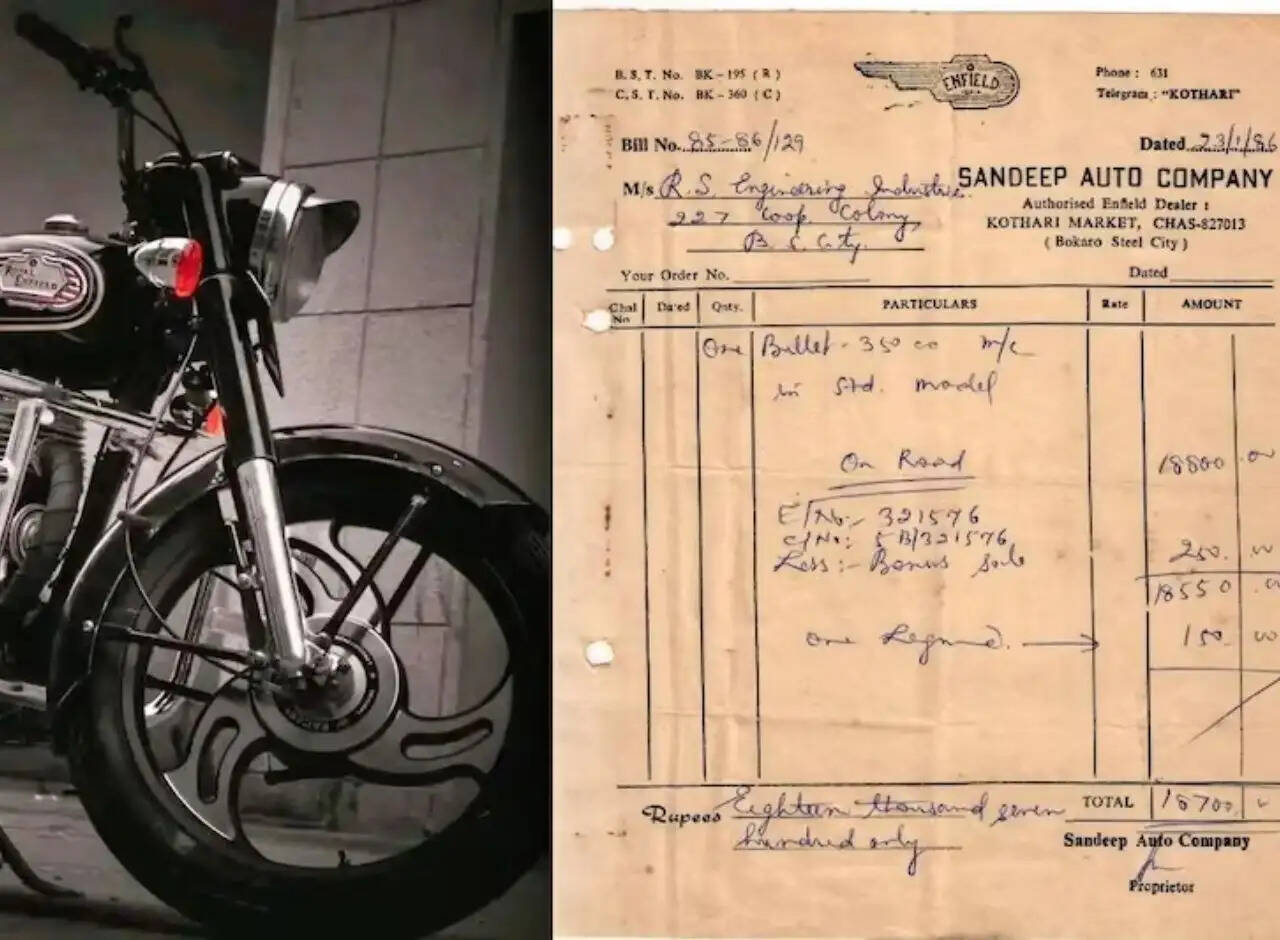 ROYAL
ENFIELD
B.S.T. No. BK-195 (R)
C.S.T. No. BK-360 (C)
ENFIELD
Phone: 631
Telegram: "KOTHARI"
Bill No. 85-86/129
Dated 23/1/86
M/s R.S. Engineering Industries.
227 Coop. Colony,
B. S. City.
SANDEEP AUTO COMPANY
Authorised Enfield Dealer:
KOTHARI MARKET, CHAS-827013
(Bokaro Steel City)
Your Order No.
Dated
Chal No Dated Qnty. PARTICULARS Rate AMOUNT
One Bullet - 350 cc m/c
in Std. model
On Road 18800.00
E/No:- 321576
C/No:- 5B/321576
Less:- Bonus 250.00
18550.00
one 150.00
Rupees Eighteen thousand seven
hundred only
TOTAL 18700
Sandeep Auto Company
Proprietor